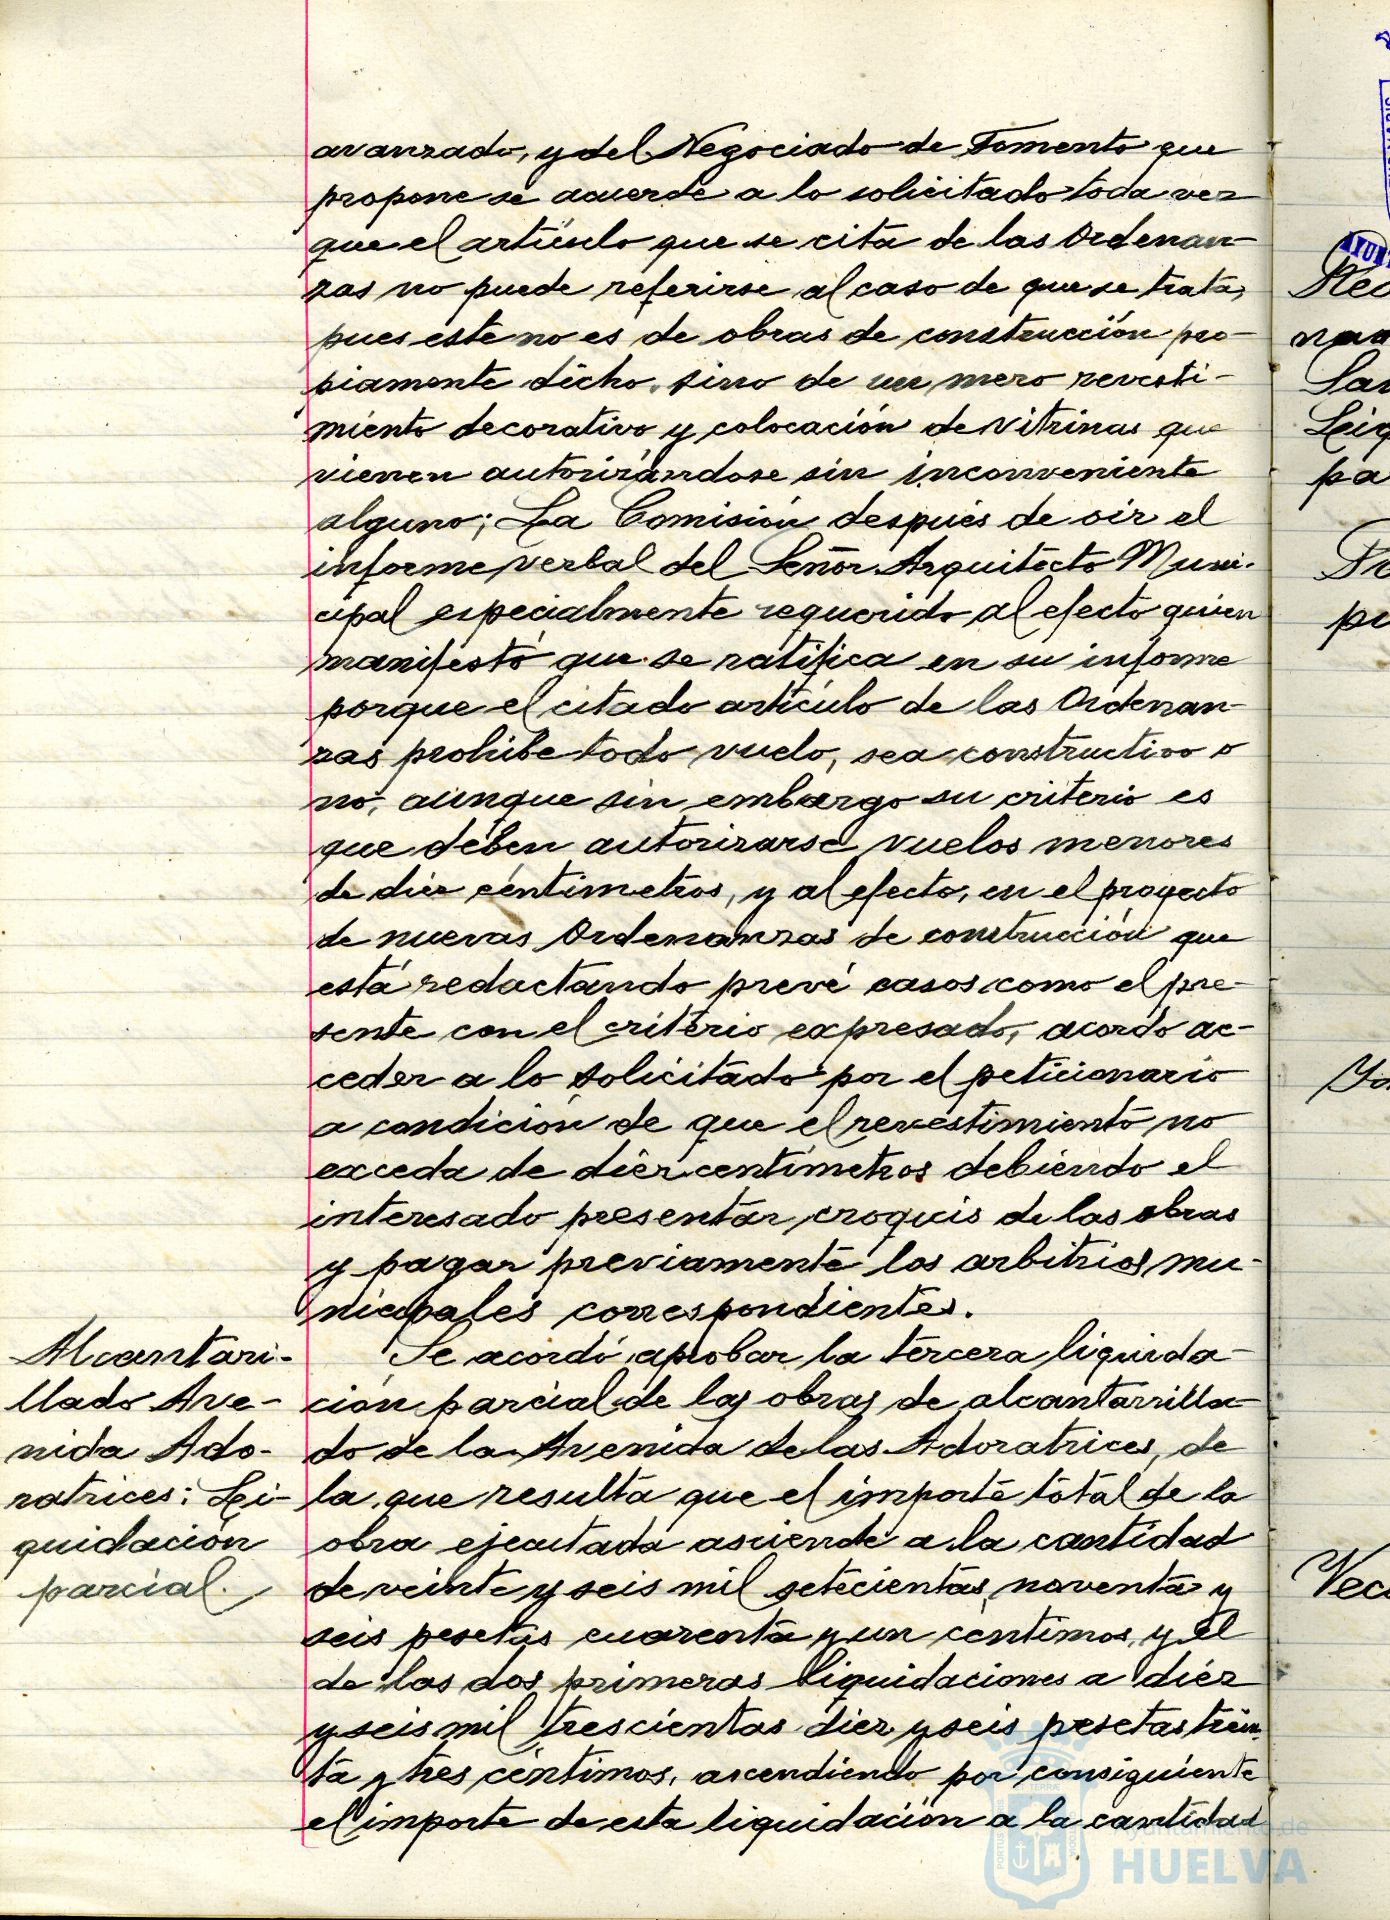 avanzado, y del Negociado de Fomento que
propone se acuerde a lo solicitado toda vez
que el artículo que se cita de las Ordenan-
zas no puede referirse al caso de que se trata,
pues este no es de obras de construcción pro-
piamente dicho, sino de un mero revesti-
miento decorativo y colocación de vitrinas que
vienen autorizándose sin inconveniente
alguno; La Comisión después de oir el
informe verbal del Señor Arquitecto Muni-
cipal especialmente requerido al efecto quien
manifestó que se ratifica en su informe
porque el citado artículo de las Ordenan-
zas prohibe todo vuelo, sea constructivo o
no, aunque sin embargo su criterio es
que deben autorizarse vuelos menores
de diez centimetros, y al efecto, en el proyecto
de nuevas Ordenanzas de construcción que
está redactando prevé casos como el pre-
sente con el criterio expresado, acordó ac-
ceder a lo solicitado por el peticionario
a condición de que el revestimiento no
exceda de diez centímetros debiendo el
interesado presentar croquis de las obras
y pagar previamente los arbitrios mu-
nicipales correspondientes.
Alcantari-
llado Ave-
nida Ado-
ratrices: Li-
quidación
parcial.
Se acordó aprobar la tercera liquida-
ción parcial de las obras de alcantarilla-
do de la Avenida de las Adoratrices, de
la que resulta que el importe total de la
obra ejecutada asciende a la cantidad
de veinte y seis mil setecientas noventa y
seis pesetas cuarenta y un centimos, y el
de las dos primeras liquidaciones a diez
y seis mil trescientas diez y seis pesetas trein-
ta y tres céntimos, ascendiendo por consiguiente
el importe de esta liquidación a la cantidad
Ayuntamiento de
HUELVA